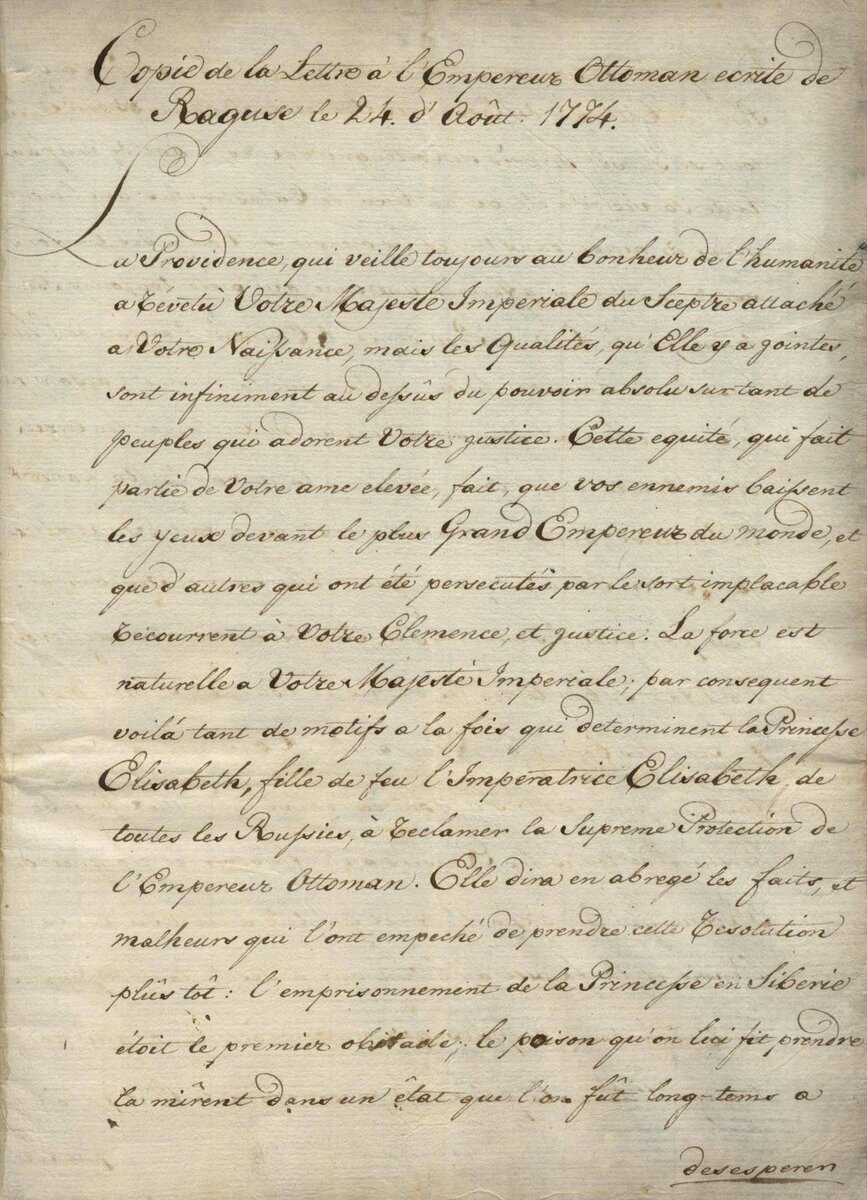 Copie de la Lettre à l'Empereur Ottoman ecrite de
Raguse le 24. d'Août. 1774.
La Providence, qui veille toujours au bonheur de l'humanité
a révetù Votre Majeste Imperiale du Sceptre attaché
a Votre Naissance, mais les Qualités, qu'Elle y a gointes,
sont infiniment au dessûs du pouvoir absolu sur tant de
peuples qui adorent Votre justice. Cette equité, qui fait
partie de Votre ame elevée, fait, que vos ennemis baissent
les yeux devant le plus Grand Empereur du monde, et
que d'autres qui ont été persecutés par le sort implacable
récourrent à Votre Clemence, et justice. La force est
naturelle a Votre Majesté Imperiale; par consequent
voilá tant de motifs a la fois qui determinent la Princesse
Elisabeth, fille de feu l'Imperatrice Elisabeth de
toutes les Russies, à reclamer la Supreme Protection de
l'Empereur Ottoman. Elle dira en abregé les faits, et
malheurs qui l'ont empeché de prendre cette resolution
plûs tôt: l'emprisonnement de la Princesse en Siberie
étoit le premier obstacle; le poison qu'on lui fit prendre
la mîrent dans un êtat que l'on fût long-tems a
desesperer